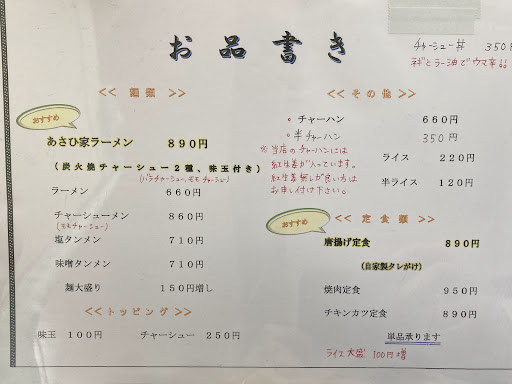 お品書き
チャーシュー丼 350円
ネギとラー油でウマ辛!!
<< 麺類 >>
おすすめ
あさひ家ラーメン 890円
(炭火焼チャーシュー2種、味玉付き)
(バラチャーシュー、モモチャーシュー)
ラーメン 660円
チャーシューメン 860円
(モモチャーシュー)
塩タンメン 710円
味噌タンメン 710円
麺大盛り 150円増し
<<トッピング>>
味玉 100円 チャーシュー 250円
<< その他 >>
・チャーハン 660円
・半チャーハン 350円
※当店のチャーハンには
紅生姜が入っています。
紅生姜無しが良い方は
お申し付け下さい。
ライス 220円
半ライス 120円
おすすめ
<< 定食類 >>
唐揚げ定食 890円
(自家製タレがけ)
焼肉定食 950円
チキンカツ定食 890円
単品承ります
ライス大盛 100円増